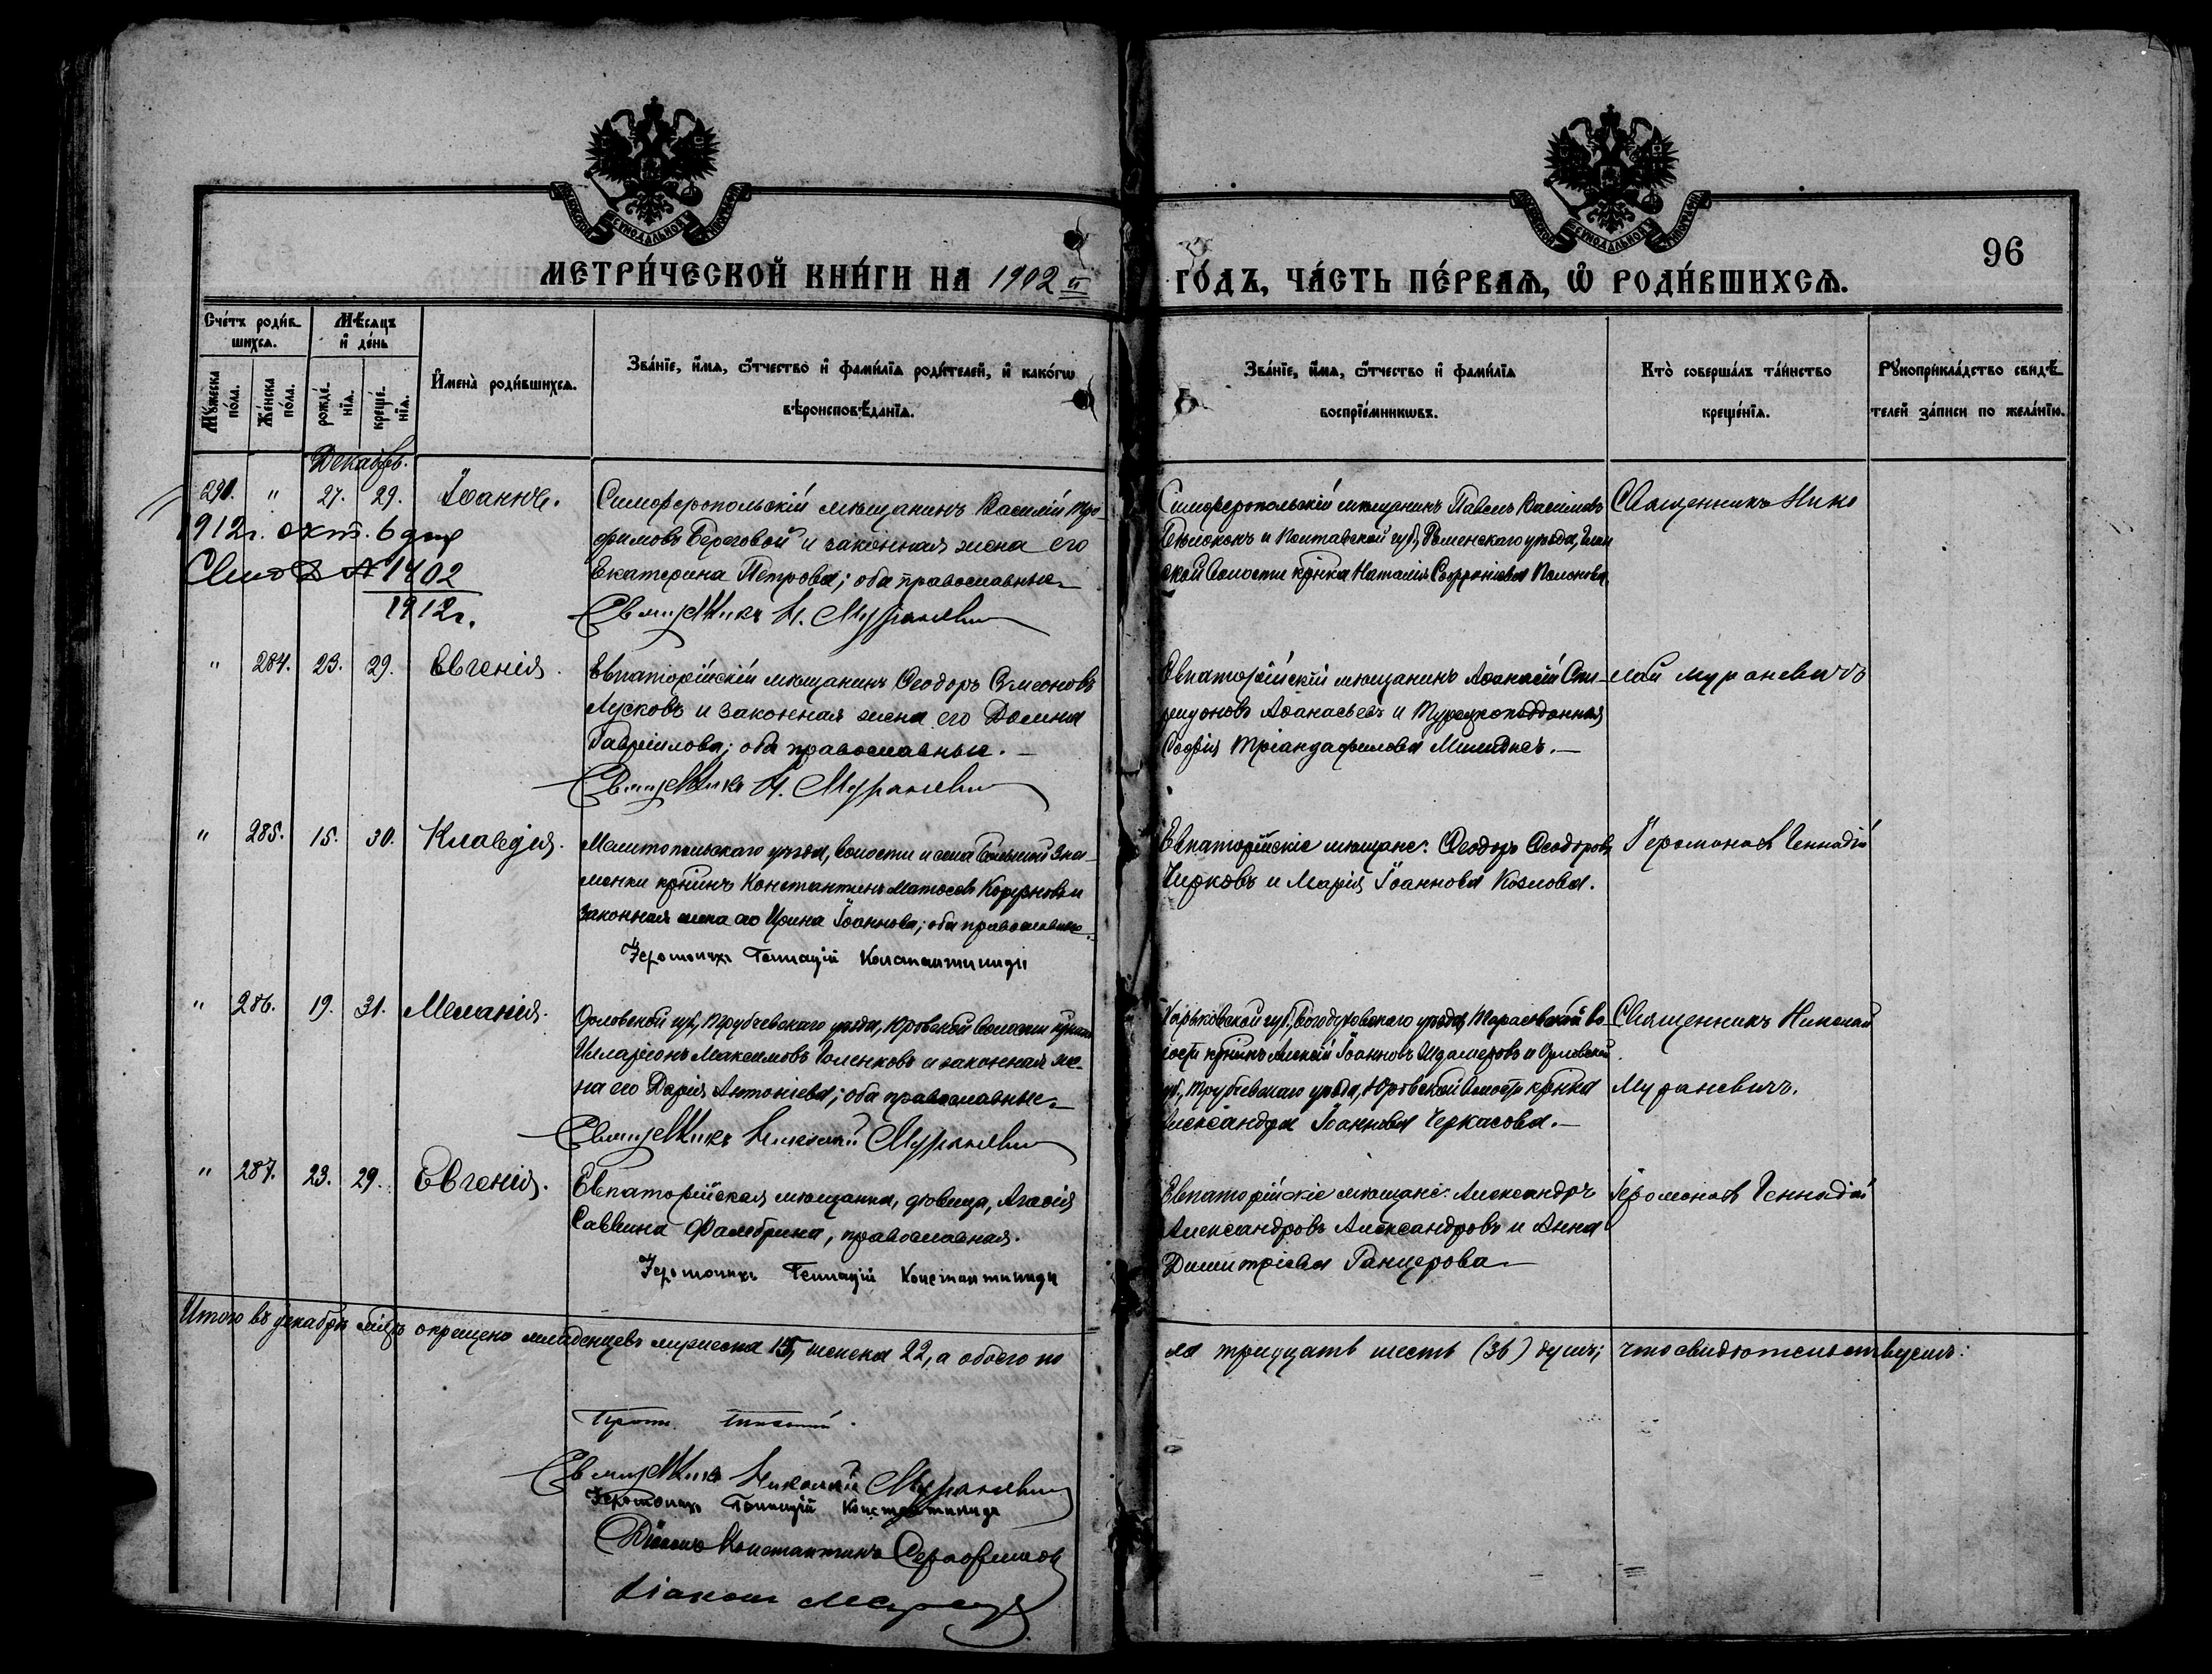 96
МЕТРИ́ЧЕСКОЙ КНИ́ГИ НА 1902 й
ГО́ДЪ, ЧА́СТЬ ПЕ́РВАѦ, Ѿ РОДИ́ВШИХСѦ.
Сче́тъ роди́в
шихсѧ.
Мѣсѧцъ
и де́нь
Мꙋжеска
по́ла.
Же́нска
по́ла.
рожде́
нїѧ.
креще́
нїѧ.
И҆мена̀ роди́вшихсѧ.
Зва́нїе, и҆́мѧ, ѻ҆́тчество и҆ фами́лїѧ роди́телей, и҆ како́гѡ
вѣроисповѣданїѧ.
Зва́нїе, и҆́мѧ, ѻ҆́тчество и҆ фами́лїѧ
воспрїе́мникѡвъ.
Кто̀ соверша́лъ та́инство
креще́нїѧ.
Рꙋкоприкла́дство свидѣ
телей за́писи по жела́нїю.
Декабрь.
290. " 27. 29. Іоаннъ.
1912г. окт. 6 дня
1402
1912г.
Симферопольскій мѣщанинъ Василій Тро-
фимовъ Береговой и законная жена его
Екатерина Петрова; оба православные.
Священникъ Н. Мураневичъ
Симферопольскій мѣщанинъ Павелъ Василіевъ
и Полтавской губ., Роменскаго уѣзда,
ской волости кр-нка Наталія Софроніева
Священникъ Нико
" 284. 23. 29. Евгенія.
Евпаторійскій мѣщанинъ Ѳеодоръ Симеоновъ
Лусковъ и законная жена его Домна
Гавріилова; оба православные.
Священникъ Н. Мураневичъ
Евпаторійскій мѣщанинъ Аѳанасій Спи-
ридоновъ Аѳанасьевъ и Турецкоподданная
Софія Тріандафилова
лай Мураневичъ
" 285. 15. 30. Клавдія.
Мелитопольскаго уѣзда, волости и села Большой Зна-
менки кр-нинъ Константинъ и
законная жена его Ирина Іоаннова; оба православные.
Іеромонахъ Геннадій Константиниди
Евпаторійскіе мѣщане: Ѳеодоръ Ѳеодоровъ
Чирковъ и Марія Іоаннова Козлова.
Іеромонахъ Геннадій
" 286. 19. 31. Меланія.
Орловской губ., Трубчевскаго уѣзда, Юровской волости кр-нинъ
Илларіонъ Максимовъ Голенковъ и законная же-
на его Дарія Антоніева; оба православные.
Священникъ Николай Мураневичъ
Харьковской губ., Богодуховскаго уѣзда, Тарасовской во-
лости кр-нинъ Алексій Іоанновъ и Орловской
губ., Трубчевскаго уѣзда, Юровской волости кр-нка
Александра Іоаннова Черкасова.
Священникъ Николай
Мураневичъ.
" 287. 23. 29. Евгенія.
Евпаторійская мѣщанка, дѣвица, Агаѳія
Саввина православная.
Іеромонахъ Геннадій Константиниди
Евпаторійскіе мѣщане: Александръ
Александровъ Александровъ и Анна
Димитріева Ранцерова
Іеромонахъ Геннадій
Итого въ декабрѣ м-цѣ окрещено младенцевъ мужеска 15, женска 22, а обоего по
ла тридцать шесть (36) душъ; что свидѣтельствуемъ:
Прот.
Священникъ Николай Мураневичъ
Іеромонахъ Геннадій Константиниди
Діаконъ Константинъ Серафимовъ
Діаконъ